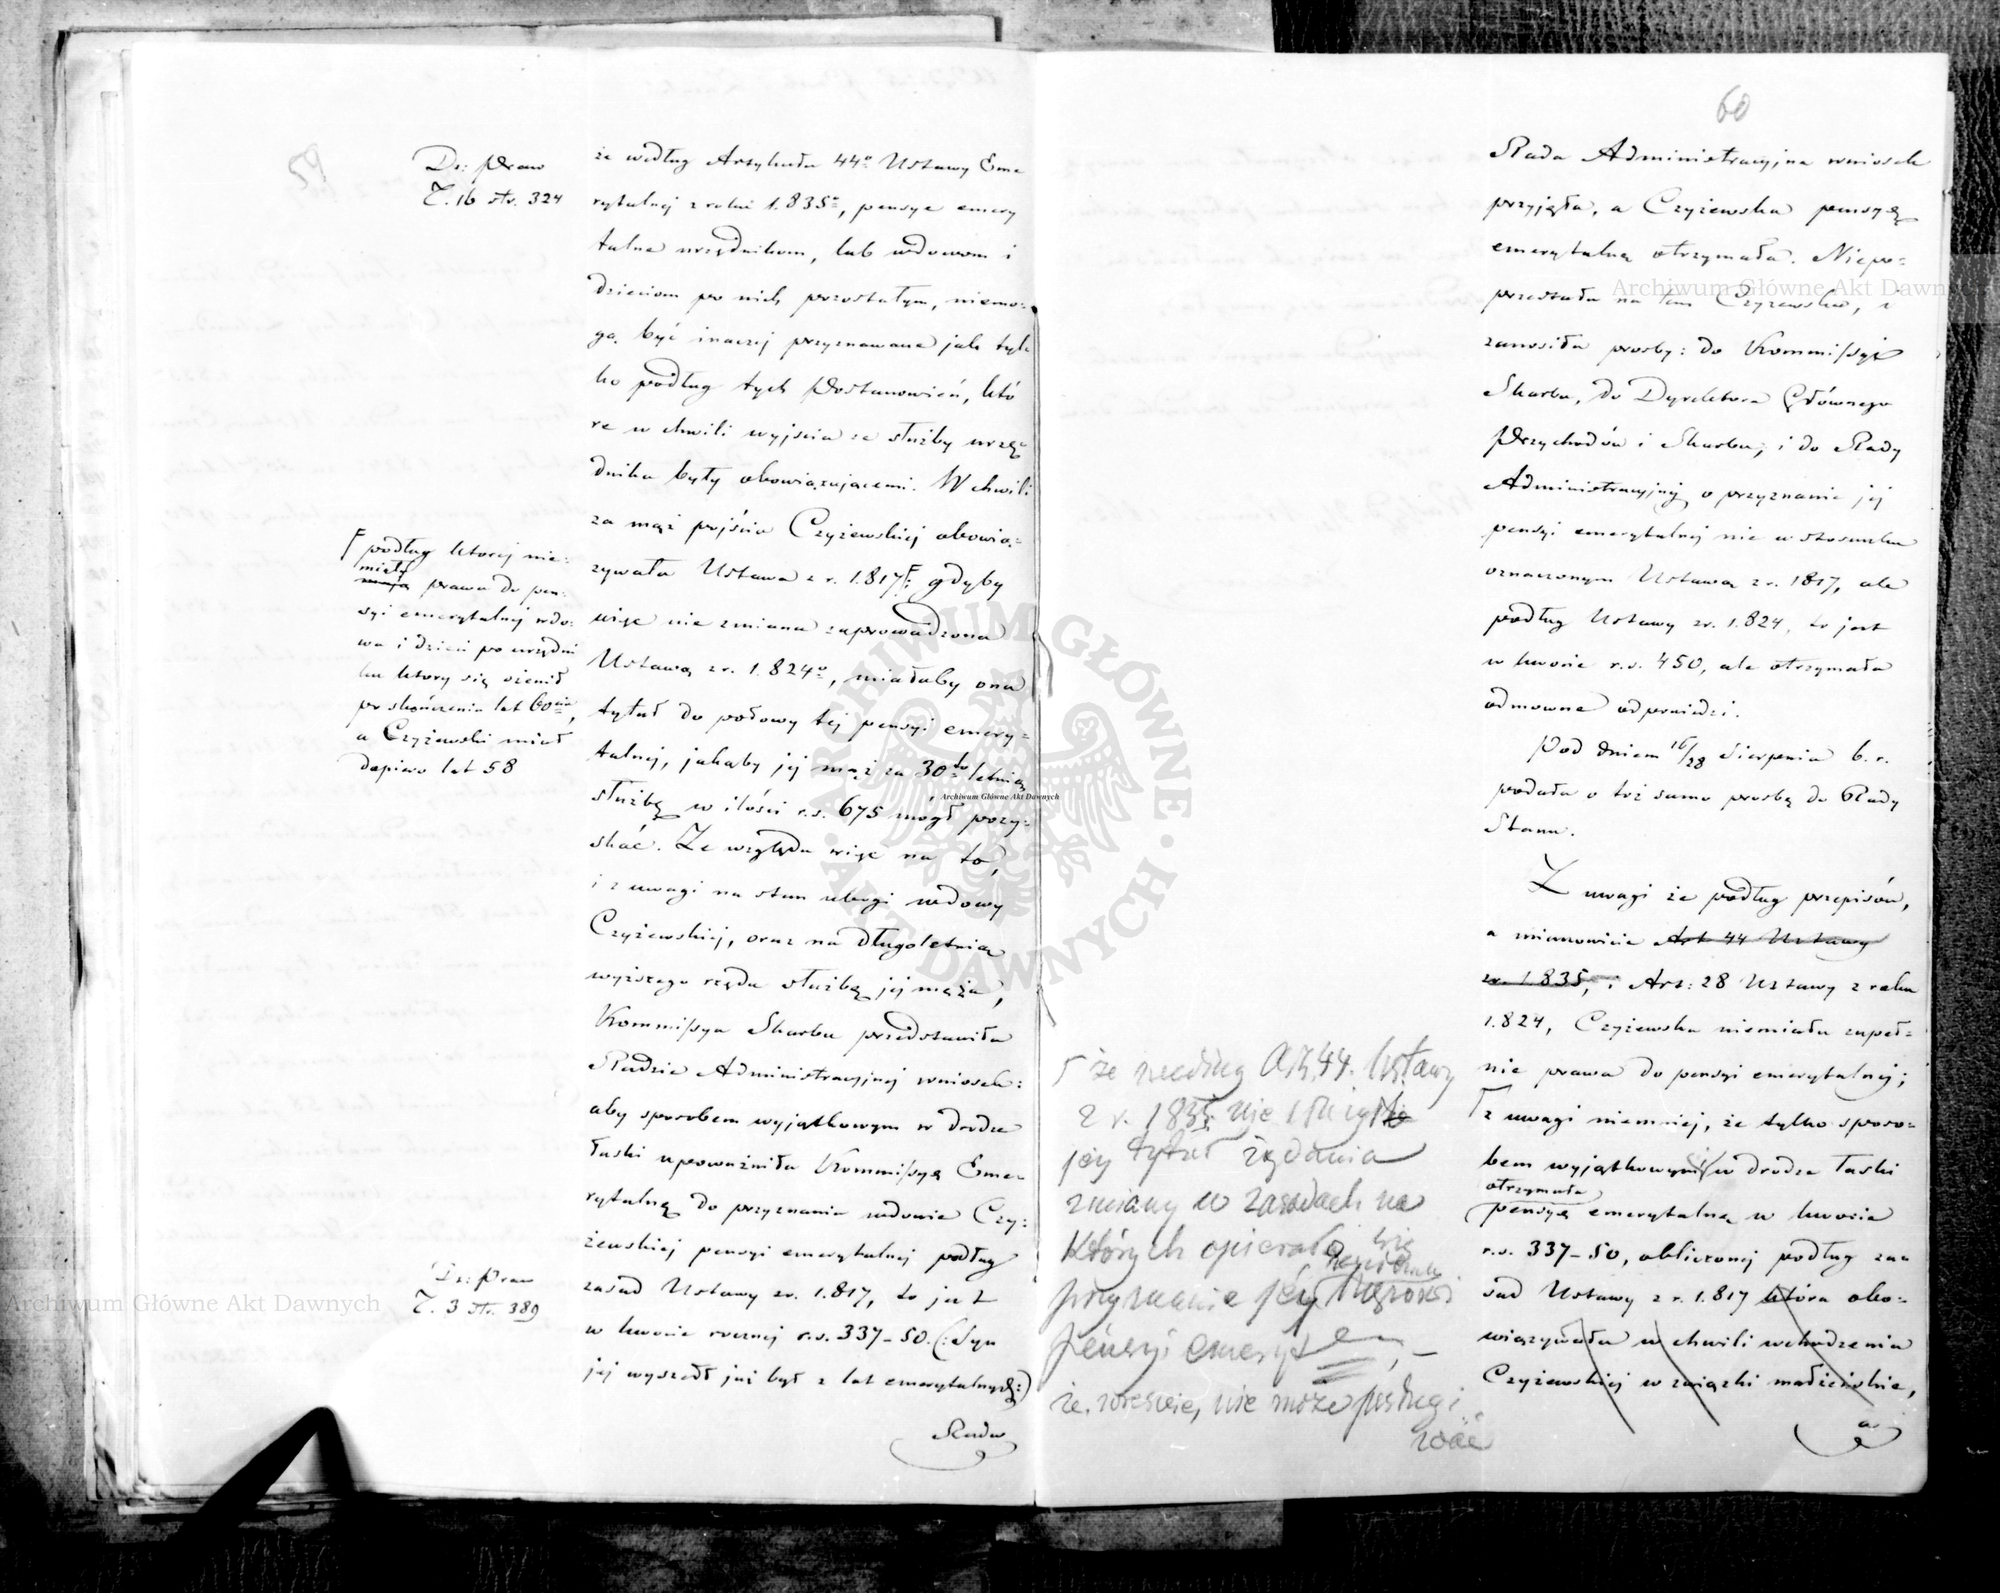 59
Dz: Praw
T. 16 str. 324
że według Artykułu 44º Ustawy Eme
rytalnej z roku 1.835º, pensye emery
talne urzędnikom, lub wdowom i
dzieciom po nich pozostałym, niemo:
gą być inaczej przyznawane jak tyl
ko podług tych Postanowień, któ
re w chwili wyjścia ze służby urzę:
dnika były obowiązującemi. W chwili
za mąż pojścia Czyżewskiej obowią:
zywała Ustawa z r. 1.817 ; gdyby
więc nie zmiana zaprowadzona
Ustawą z r. 1.824º, miałaby ona
tytuł do połowy tej pensyi emery:
talnej, jakąby jej mąż za 30to letnią
służbę w ilości r.s. 675 mógł pozy:
skać. Ze względu więc na to,
i z uwagi na stan ubogi wdowy
Czyżewskiej, oraz na długoletnią
wyższego rzędu służbę jej męża,
Kommissya Skarbu przedstawiła
Radzie Administracyjnej wniosek:
aby sposobem wyjątkowym w drodze
łaski upoważniła Kommissyę Eme:
rytalną do przyznania wdowie Czy:
żewskiej pensyi emerytalnej podług
zasad Ustawy z r. 1.817, to jest
w kwocie rocznej r.s. 337-50. (: Syn
jej wyszedł już był z lat emerytalnych :)
Rada
podług ktorej nie:
miały
mają prawa do pen:
syi emerytalnej wdo:
wa i dzieci po urzędni
ku ktory się ożenił
po skończeniu lat 60ciu,
a Czyżewski miał
dopiero lat 58
Dz: Praw
T. 3 str. 389
60
Rada Administracyjna wniosek
przyjęła, a Czyżewska pensyę
emerytalną otrzymała. Niepo:
przestała na tem Czyżewska, i
zanosiła prosby: do Kommissyi
Skarbu, do Dyrektora Głównego
Przychodów i Skarbu, i do Rady
Administracyjnej o przyznanie jej
pensyi emerytalnej nie w stosunku
oznaczonym Ustawą z r. 1817, ale
podług Ustawy z r. 1.824, to jest
w kwocie r.s. 450, ale otrzymała
odmowne odpowiedzi.
Pod dniem 16/28 Sierpnia b. r.
podała o toż samo prosbę do Rady
Stanu.
Z uwagi że podług przepisów,
a mianowicie Art 44 Ustawy
z r. 1.835, i Art: 28 Ustawy z roku
1.824, Czyżewska niemiała zupeł:
nie prawa do pensyi emerytalnej;
z uwagi niemniej, że tylko sposo:
bem wyjątkowym w drodze łaski
otrzymała
pensyę emerytalną w kwocie
r.s. 337-50, obliczonej podług za:
sad Ustawy z r. 1.817 która obo:
wiązywała w chwili wchodzenia
Czyżewskiej w związki małżeńskie,
a
że według Art. 44. Ustawy
z r. 1835 nie służy
jey tytuł żądania
zmiany w zasadach na
których opierało się
przyznanie jey
pensyi emeryt
że wreście, nie może
Archiwum Główne Akt Dawnych
Archiwum Główne Akt Dawnych
Archiwum Główne Akt Dawnych
ARCHIWUM GŁÓWNE AKT DAWNYCH